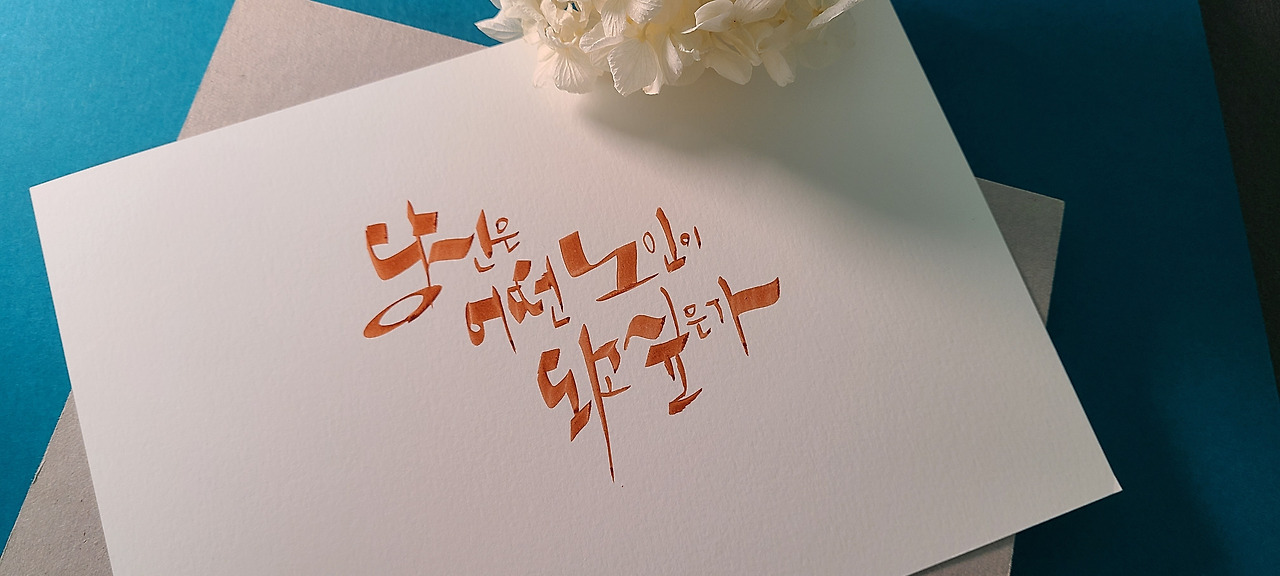 당신은
어떤 노인이
되고 싶은가